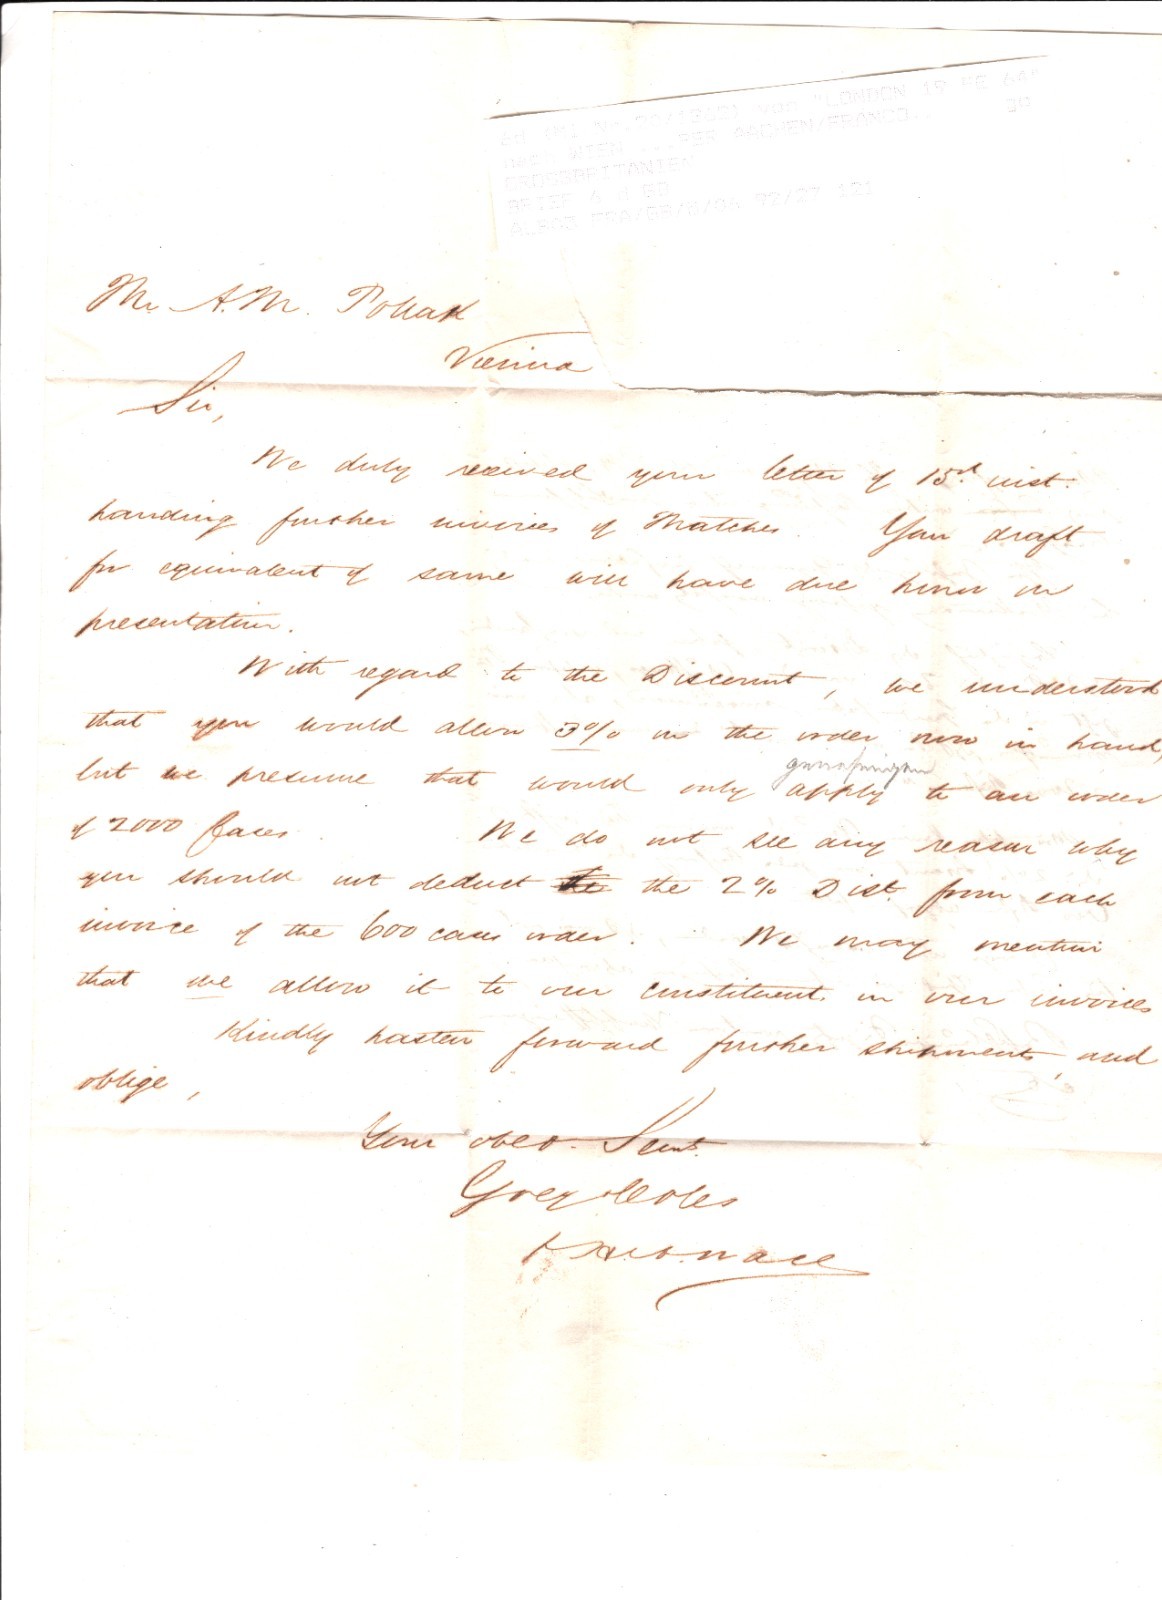 "LONDON 18 FE 64"
WIEN ... PER AACHEN/FRANCO..
GROSSBRITANIEN
BRIEF
Mr. A. M. Pollak
Vienna
Sir,
We duly received your letter of 15th inst.
handing further invoices of Matches. Your draft
for equivalent of same will have due honor on
presentation.
With regard to the Discount, we understood
that you would allow 3% on the order now in hand,
but we presume that would only apply to an order
of 2000 Cases. We do not see any reason why
you should not deduct the 2% Dist. from each
invoice of the 600 cases order. We may mention
that we allow it to our constituents in our invoices
Kindly hasten forward further shipments, and
oblige,
Your obed. Servt.
Grey & Coles